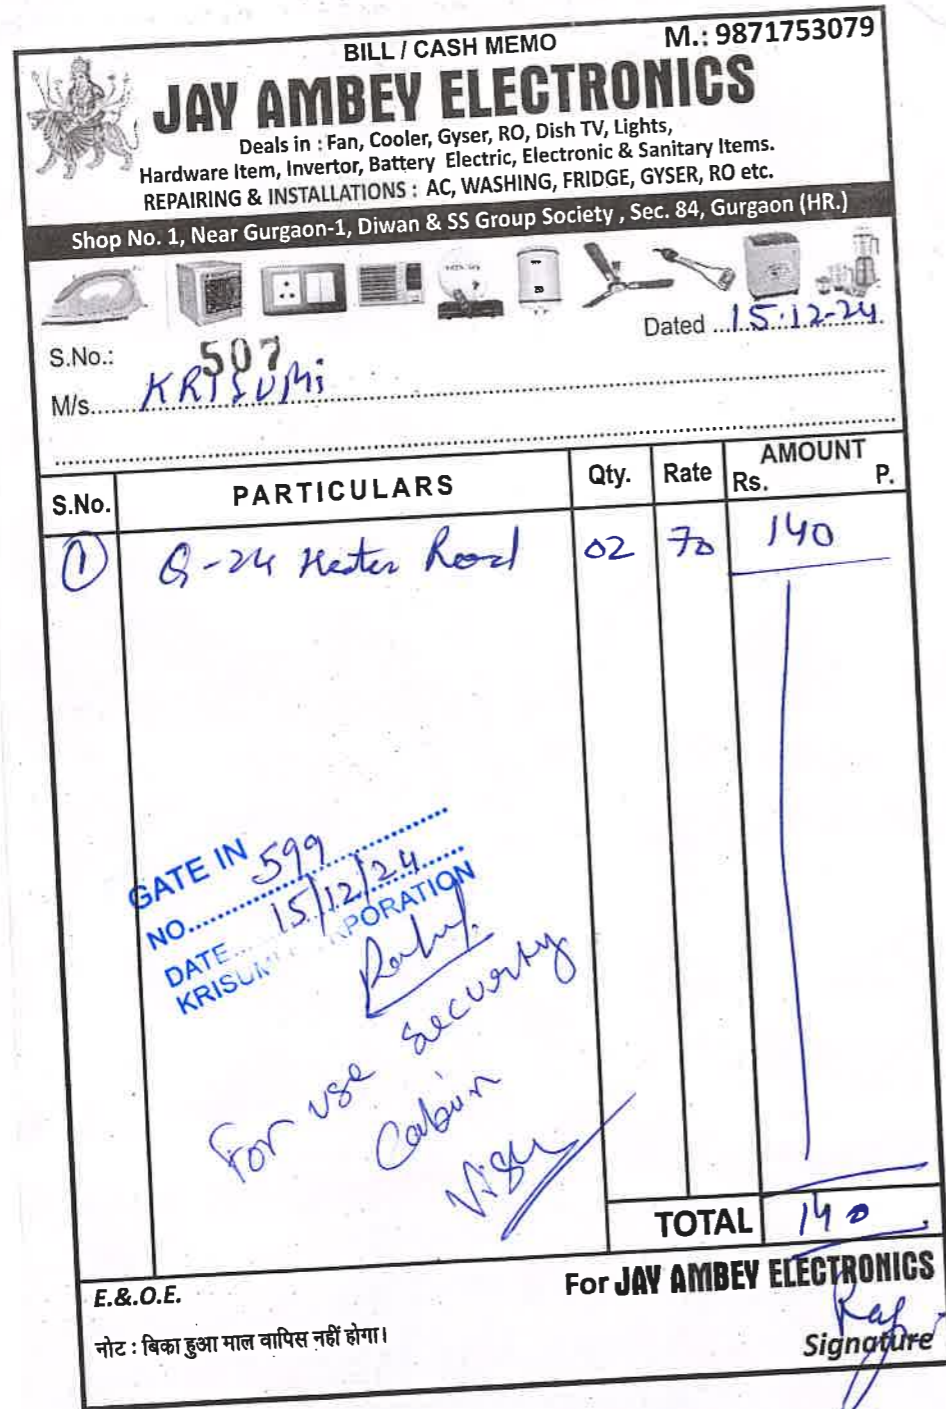 BILL / CASH MEMO M.: 9871753079
JAY AMBEY ELECTRONICS
Deals in : Fan, Cooler, Gyser, RO, Dish TV, Lights,
Hardware Item, Invertor, Battery Electric, Electronic & Sanitary Items.
REPAIRING & INSTALLATIONS : AC, WASHING, FRIDGE, GYSER, RO etc.
Shop No. 1, Near Gurgaon-1, Diwan & SS Group Society , Sec. 84, Gurgaon (HR.)
Dated ...15.12-24
S.No.: 507
M/s..... KRISUMi
S.No. PARTICULARS Qty. Rate AMOUNT
Rs. P.
① Q-24 Heater Road 02 70 140
GATE IN
NO..... 599
DATE.... 15/12/24
KRISUMI CORPORATION
For use security
Cabin
TOTAL 140
E.&.O.E. For JAY AMBEY ELECTRONICS
नोट : बिका हुआ माल वापिस नहीं होगा।
Signature